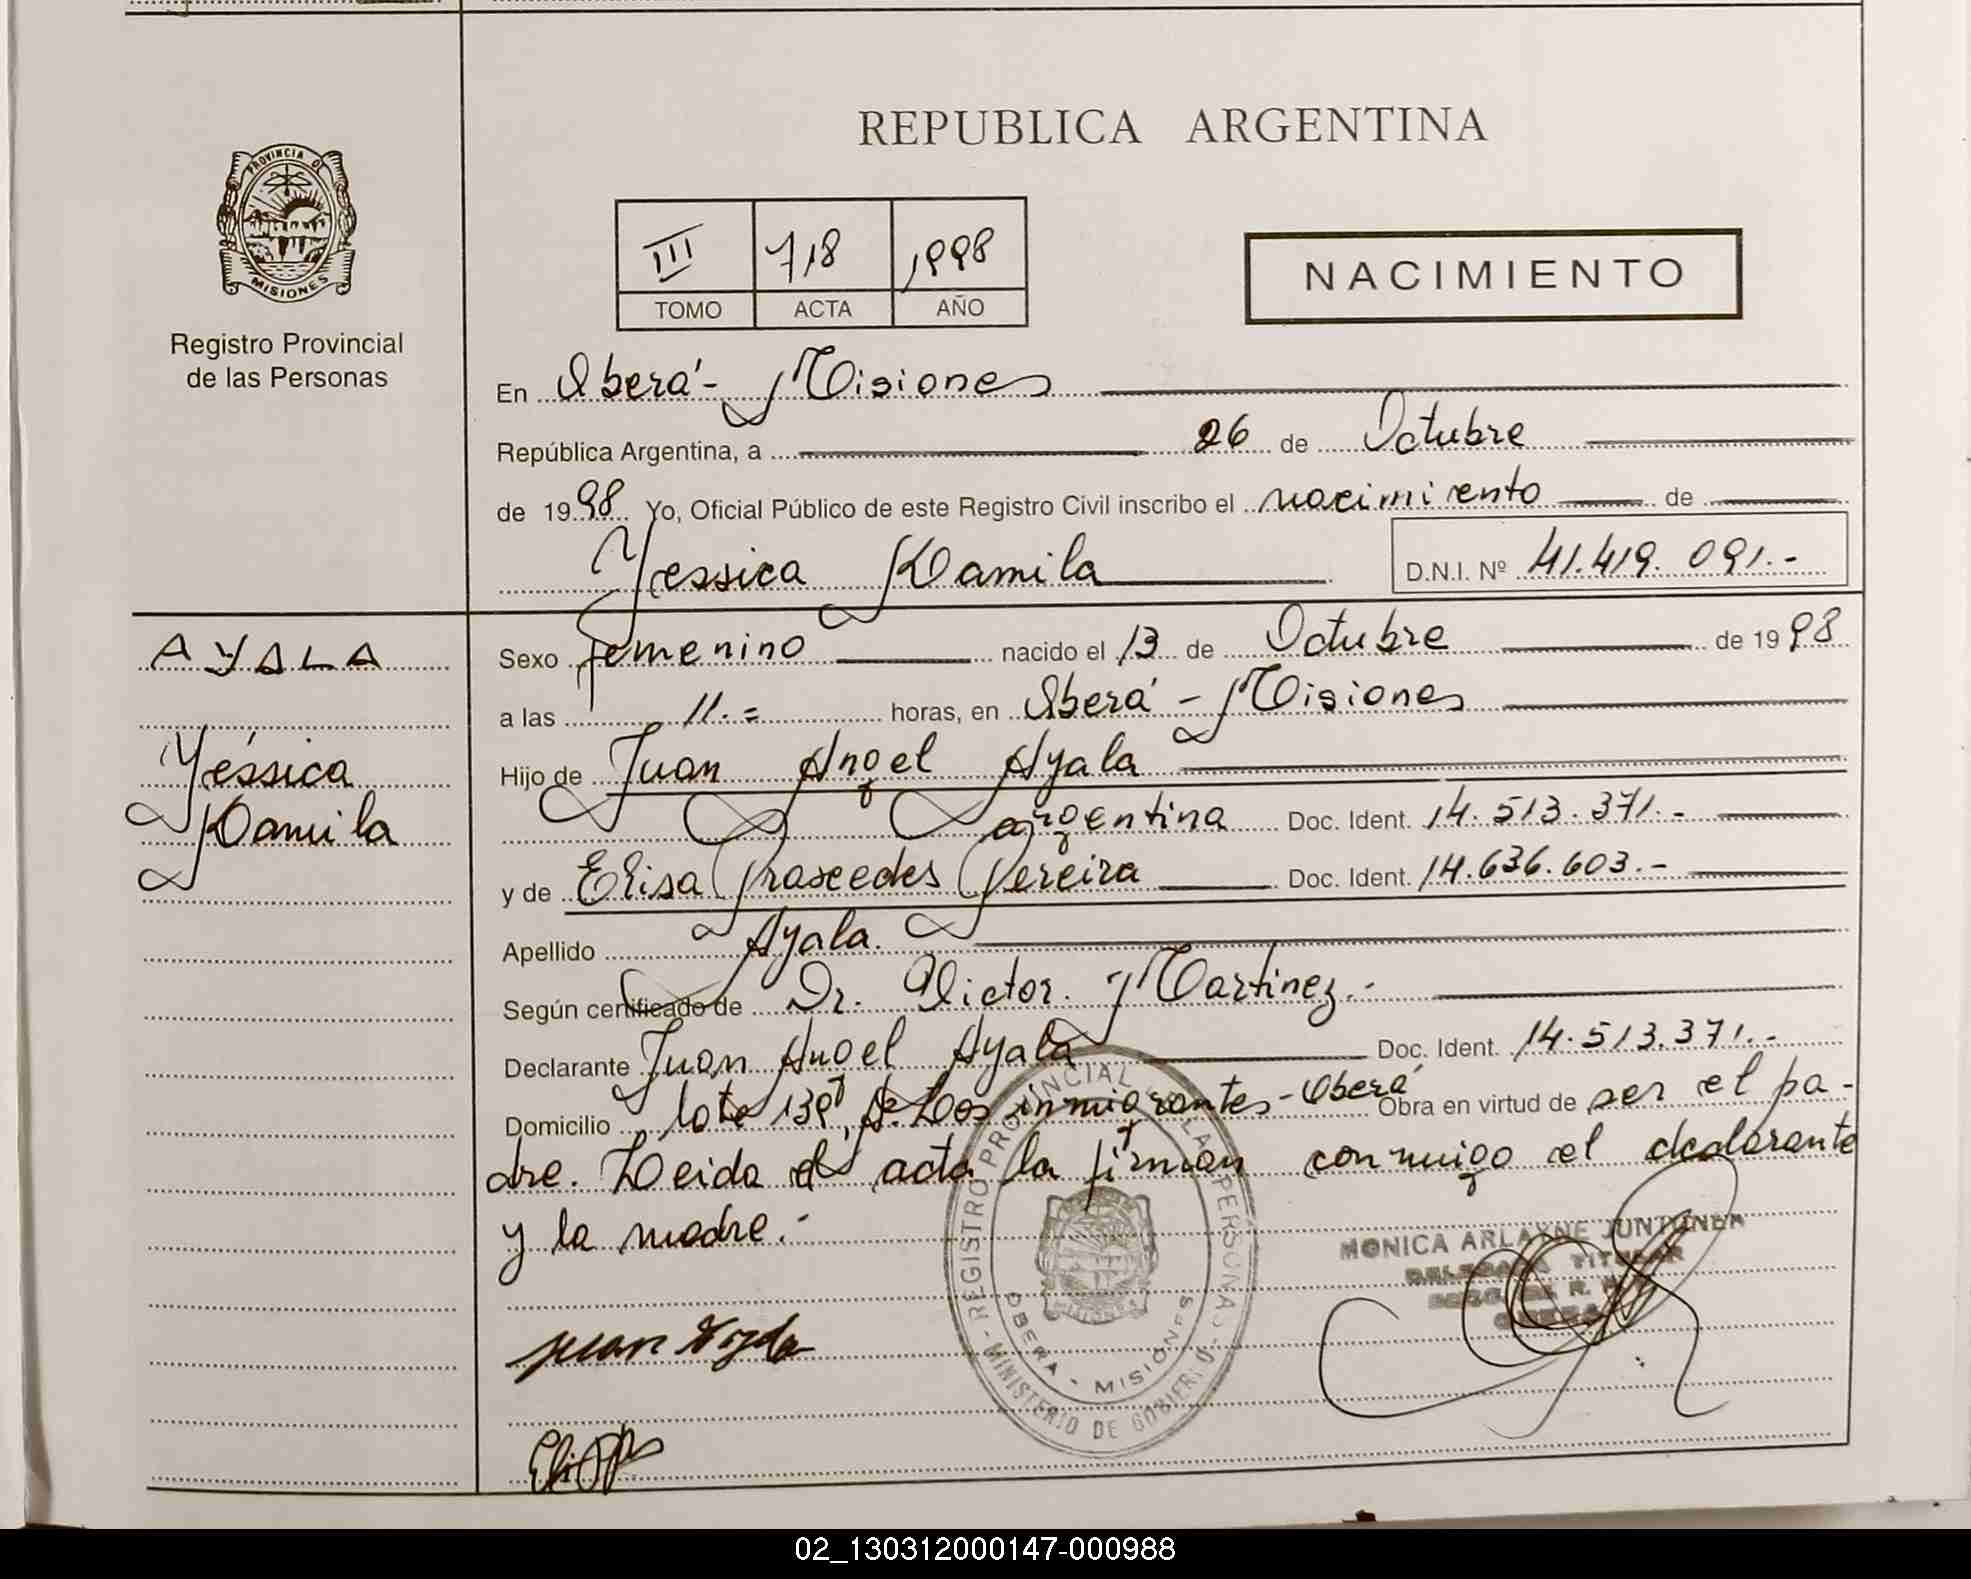 REPUBLICA ARGENTINA
PROVINCIA DE
MISIONES
Registro Provincial
de las Personas
III 718 1998
TOMO ACTA AÑO
NACIMIENTO
En Oberá - Misiones
República Argentina, a 26 de Octubre
de 1998 Yo, Oficial Público de este Registro Civil inscribo el nacimiento de
Yessica Kamila D.N.I. Nº 41.419.091.-
AYALA
Yéssica
Kamila
Sexo femenino nacido el 13 de Octubre de 1998
a las 11.= horas, en Oberá - Misiones
Hijo de Juan Angel Ayala
argentina Doc. Ident. 14.513.371.-
y de Elisa Prascedes Pereira Doc. Ident. 14.636.603.-
Apellido Ayala.
Según certificado de Dr. Victor Martinez.-
Declarante Juan Angel Ayala Doc. Ident. 14.513.371.-
Domicilio lote 139, Los inmigrantes - Oberá Obra en virtud de ser el pa-
dre. Leida el acta la firman conmigo el declarante
y la madre.-
REGISTRO PROVINCIAL DE LAS PERSONAS
MINISTERIO DE GOBIERNO
OBERA - MISIONES
MISIONES
MONICA ARLAYNE
TITULAR
Juan Ayala
02_130312000147-000988